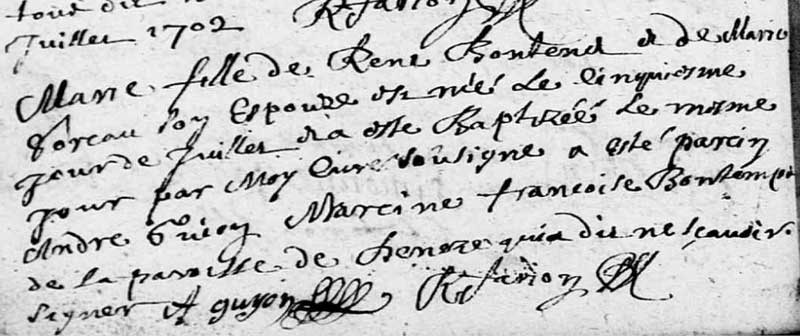 tous dit
Juillet 1702
Marie fille de René Bontend et de Marie
Soreau son Espouze est née Le cinquiesme
jour de Juillet et a esté Baptizéé Le mesme
jour par Moy Curé sousigne a esté parein
Andre Guion Mareine francoise Bontemps
de la paroisse de quia dit ne sçavoir
signer A guyon